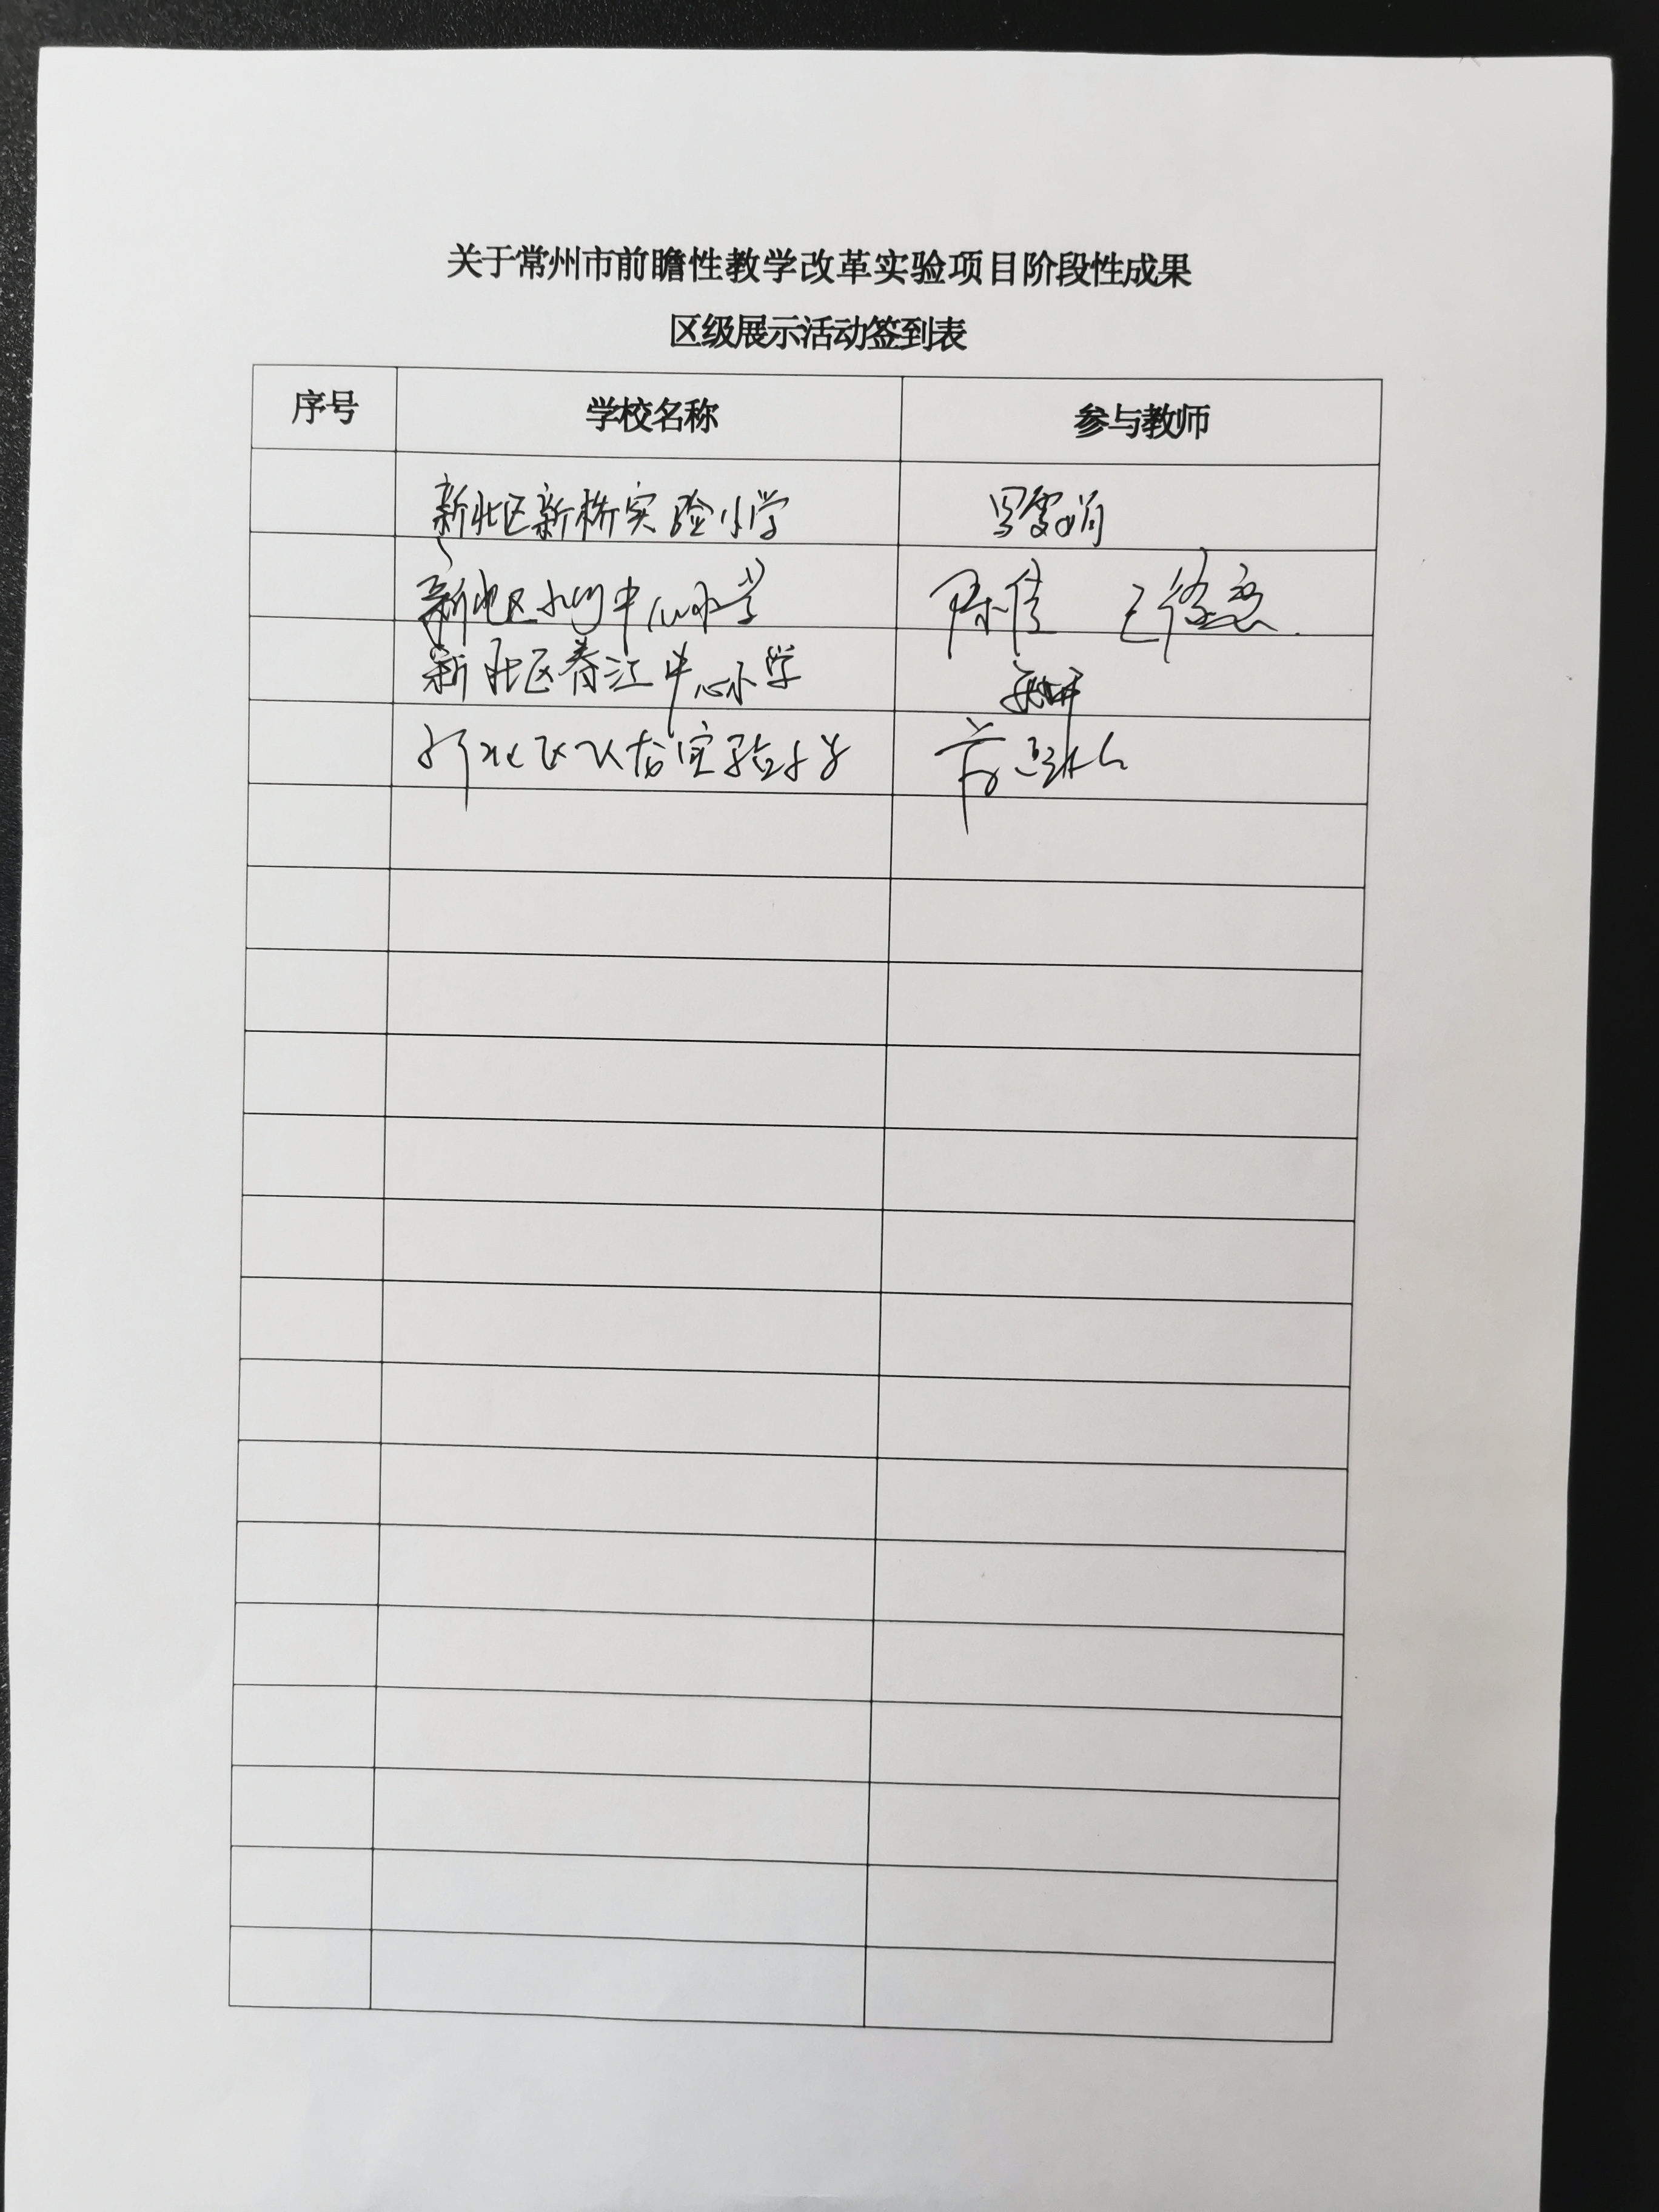 关于常州市前瞻性教学改革实验项目阶段性成果
区级展示活动签到表
序号 学校名称 参与教师
新北区新桥实验小学 罗雪娟
新北区小河中心小学 陈佳
新北区春江中心小学
新北区飞龙实验小学